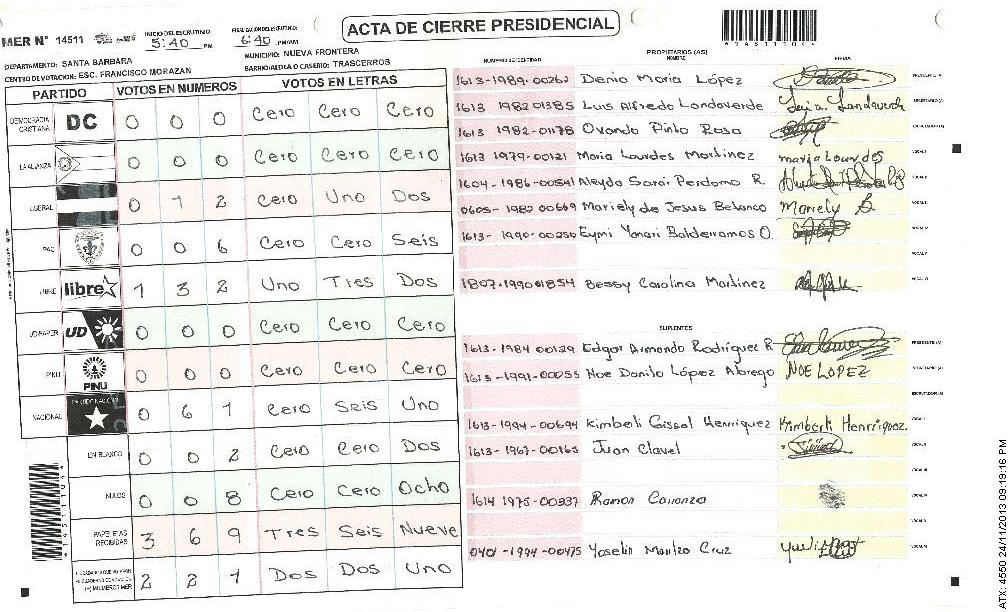 ACTA DE CIERRE PRESIDENCIAL
MER N° 14511
INICIO DEL ESCRUTINIO: 5:40 PM
FINALIZACION DEL ESCRUTINIO: 6:40 PM/AM
*14511104*
DEPARTAMENTO: SANTA BARBARA
MUNICIPIO: NUEVA FRONTERA
CENTRO DE VOTACION: ESC. FRANCISCO MORAZAN
BARRIO/ALDEA O CASERIO: TRASCERROS
PARTIDO VOTOS EN NUMEROS VOTOS EN LETRAS
DEMOCRACIA CRISTIANA DC 0 0 0 Cero Cero Cero
LA ALIANZA 0 0 0 Cero Cero Cero
LIBERAL 0 1 2 Cero Uno Dos
PAC 0 0 6 Cero Cero Seis
LIBRE libre 1 3 2 Uno Tres Dos
UD-FAPER UD 0 0 0 Cero Cero Cero
PINU PINU 0 0 0 Cero Cero Cero
NACIONAL PARTIDO NACIONAL 0 6 1 Cero Seis Uno
EN BLANCO 0 0 2 Cero Cero Dos
NULOS 0 0 8 Cero Cero Ocho
PAPELETAS RECIBIDAS 3 6 9 Tres Seis Nueve
2 2 1 Dos Dos Uno
*14511104*
PROPIETARIOS (AS)
NUMERO DE IDENTIDAD NOMBRE FIRMA
1613-1989-00262 Denia Maria López PRESIDENTE (A)
1613 1982 01385 Luis Alfredo Landaverde SECRETARIO (A)
1613 1982-01178 Ovando Pinto Rosa ESCRUTADOR (A)
1613 1979-00121 Maria Lourdes Martinez maria Lourdes VOCAL I
1604-1986-00541 Aleyda Sarai Perdomo R. VOCAL II
0605-1982 00669 Mariely de Jesus Betanco Mariely B. VOCAL III
1613-1990-00250 Eymi Yanari Balderramos O. VOCAL IV
VOCAL V
1807-1990 01854 Bessy Carolina Martinez VOCAL VI
SUPLENTES
1613-1984 00129 Edgar Armando Rodríguez R PRESIDENTE (A)
1613-1991-00055 Noe Danilo López Abrego NOE LOPEZ SECRETARIO (A)
ESCRUTADOR (A)
1613-1994-00694 Kimberli Gissel Henriquez Kimberli Henriquez. VOCAL I
1613-1967-00165 Juan Clavel VOCAL II
VOCAL III
1614 1975-00337 Ramon Carranza VOCAL IV
VOCAL V
0401-1994-00475 Yoselin Maritza Cruz VOCAL VI
ATX: 4550 24/11/2013 09:19:16 PM